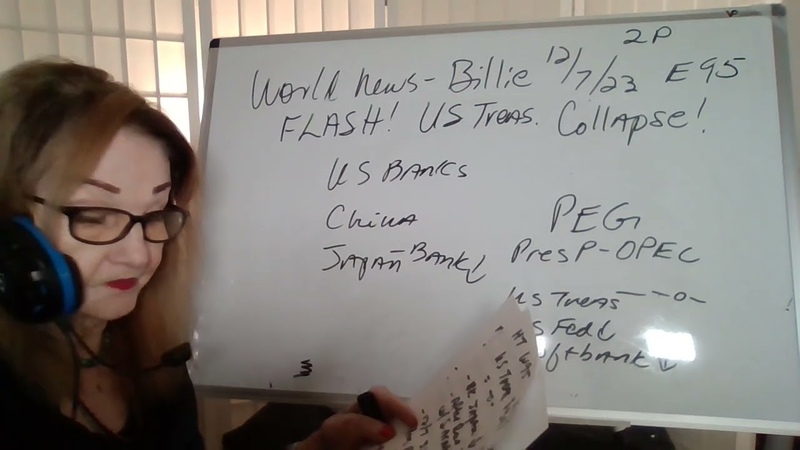 2P
World News - Billie 12/7/23 E95
FLASH! US Treas. Collapse!
US BANKS
China
Japan - Bank
PEG
Pres P - OPEC
US Treas - - o -
US Fed
Softbank ↓